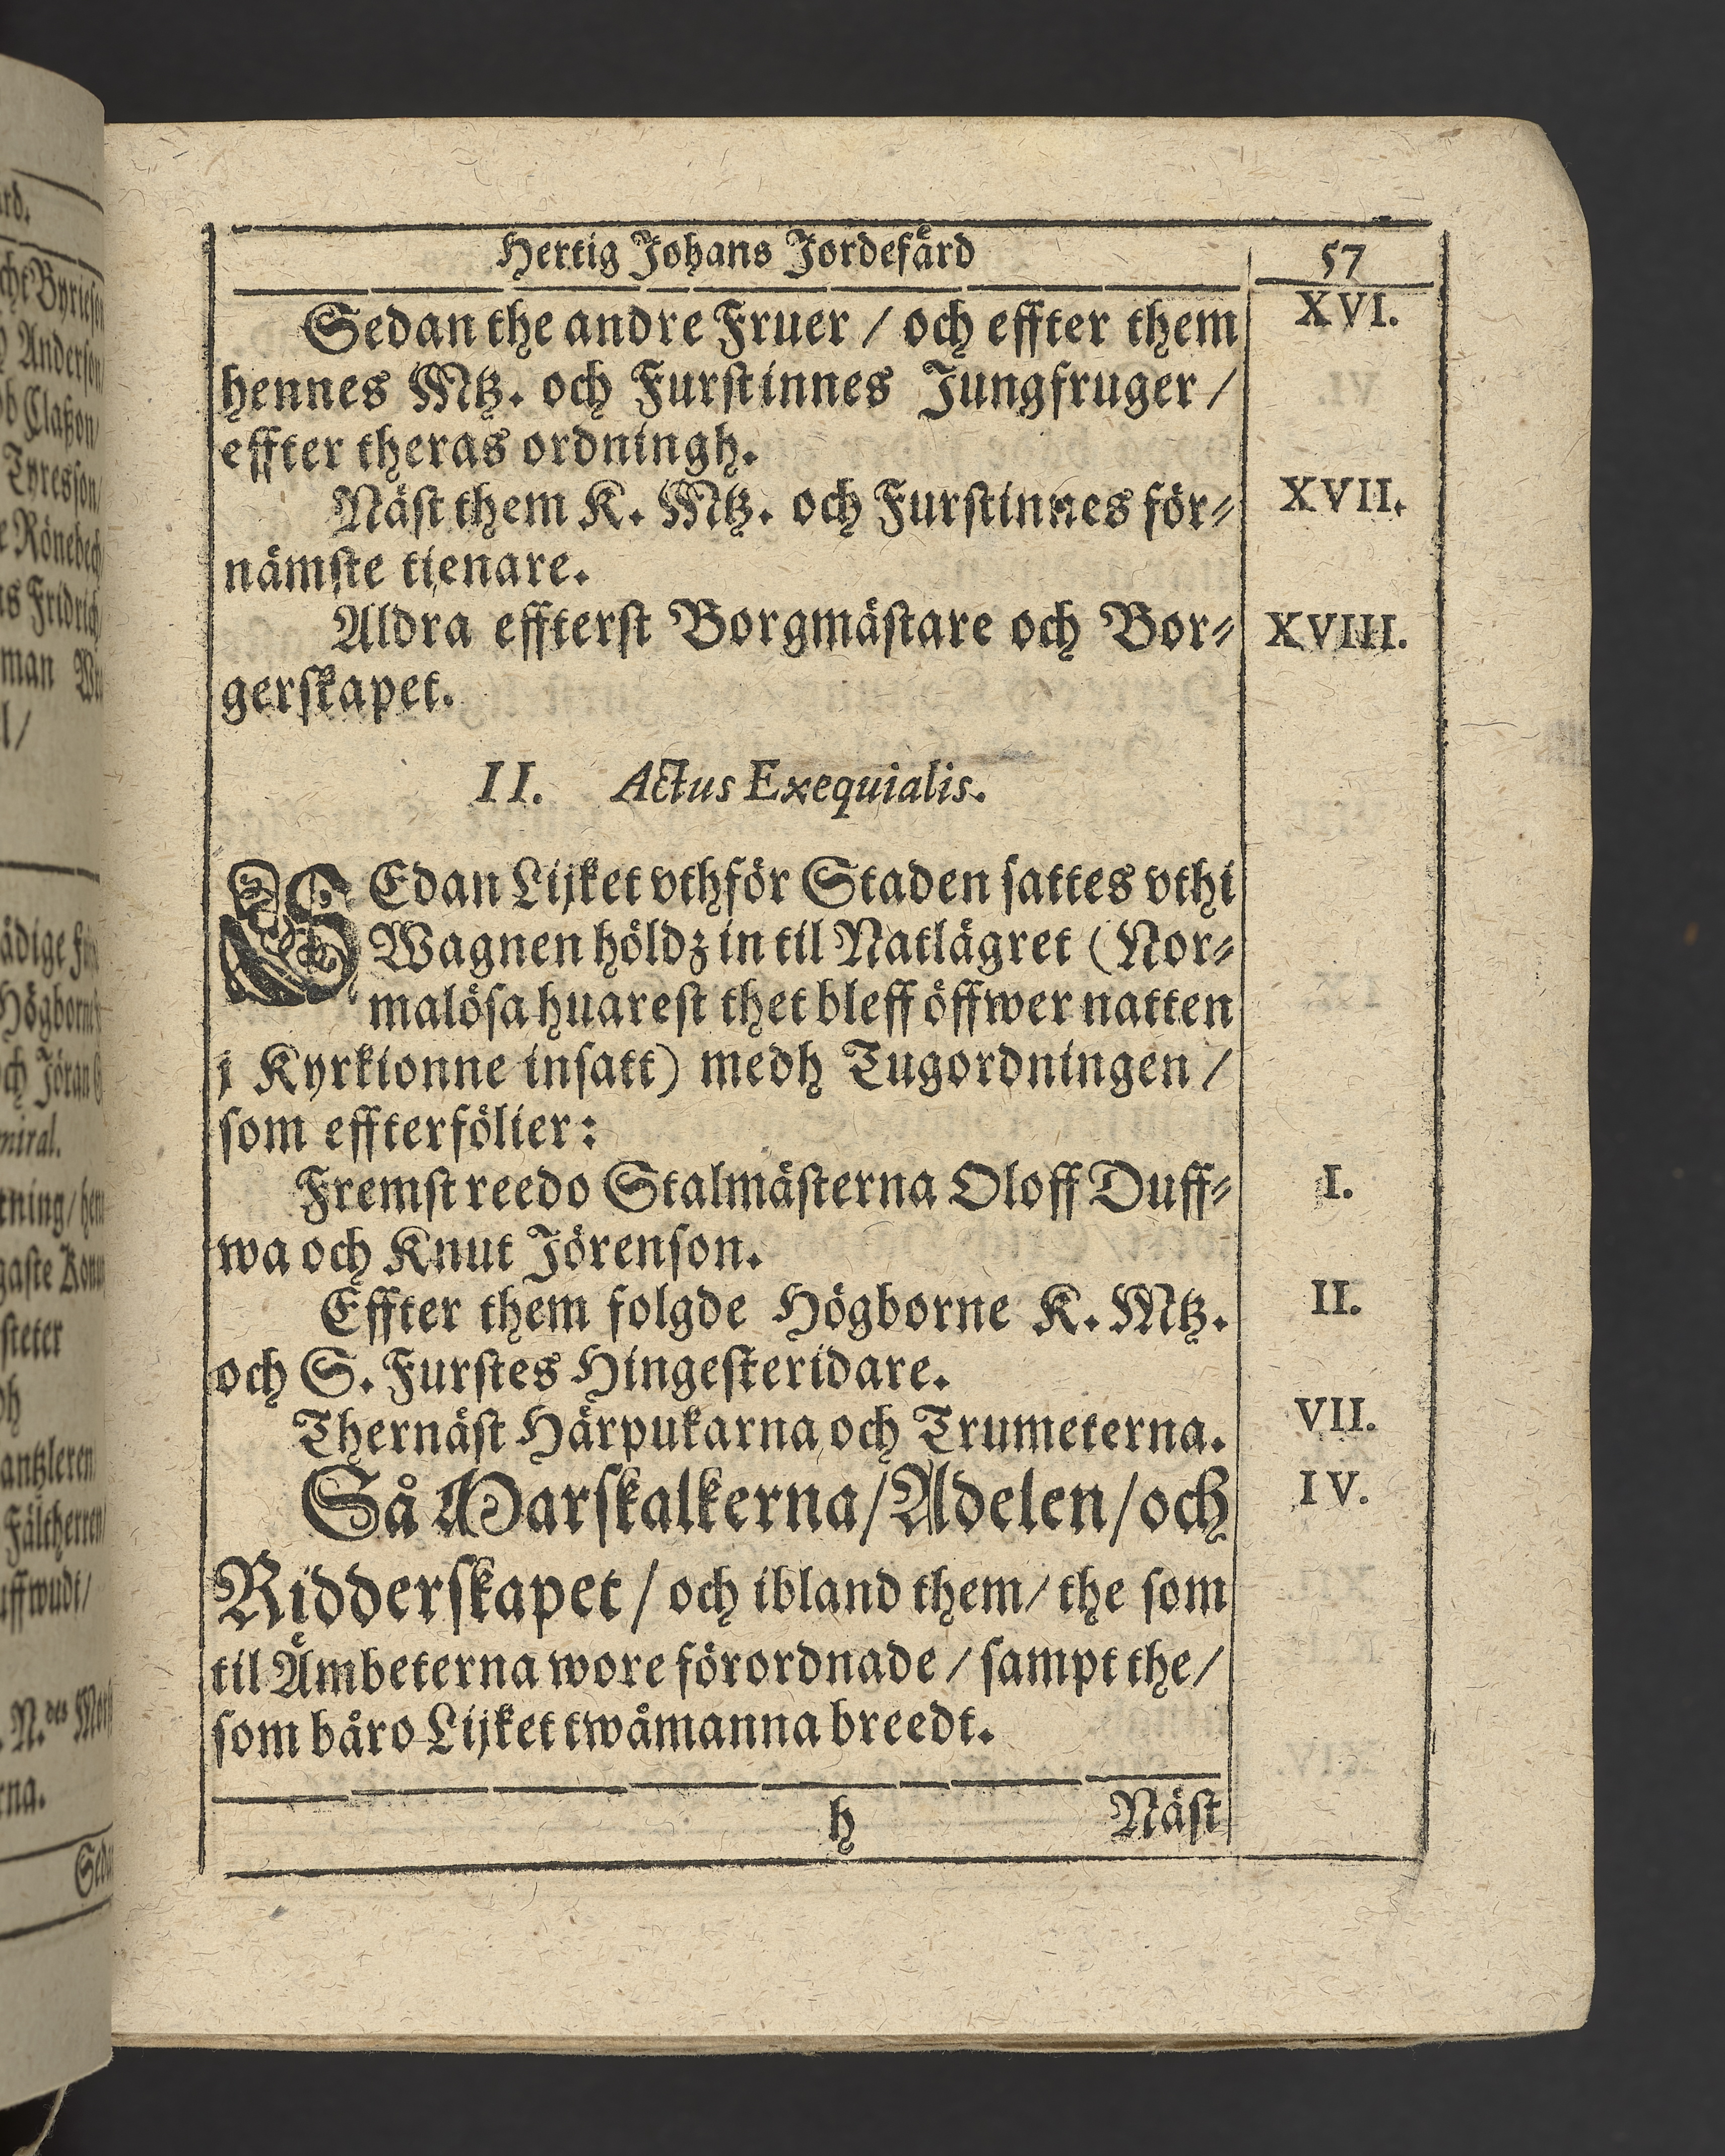 Hertig Johans Jordefärd
57
Sedan the andre Fruer / och effter them
XVI.
hennes Mtz. och Furstinnes Jungfruger /
effter theras ordningh.
Näst them K. Mtz. och Furstinnes för⸗
XVII.
nämste tienare.
Aldra effterst Borgmästare och Bor⸗
XVIII.
gerskapet.
II. Actus Exequialis.
SEdan Lijket vthför Staden sattes vthi
Wagnen höldz in til Natlägret (Nor⸗
malösa huarest thet bleff öffwer natten
j Kyrkionne insatt) medh Tugordningen /
som effterfölier:
Fremst reedo Stalmästerna Oloff Duff⸗
I.
wa och Knut Jörenson.
Effter them folgde Högborne K. Mtz.
II.
och S. Furstes Hingesteridare.
Thernäst Härpukarna och Trumeterna.
VII.
Så Marskalkerna/Adelen/och
IV.
Ridderskapet / och ibland them/ the som
til Ämbeterna wore förordnade / sampt the/
som båro Lijket twåmanna breedt.
h
Näst